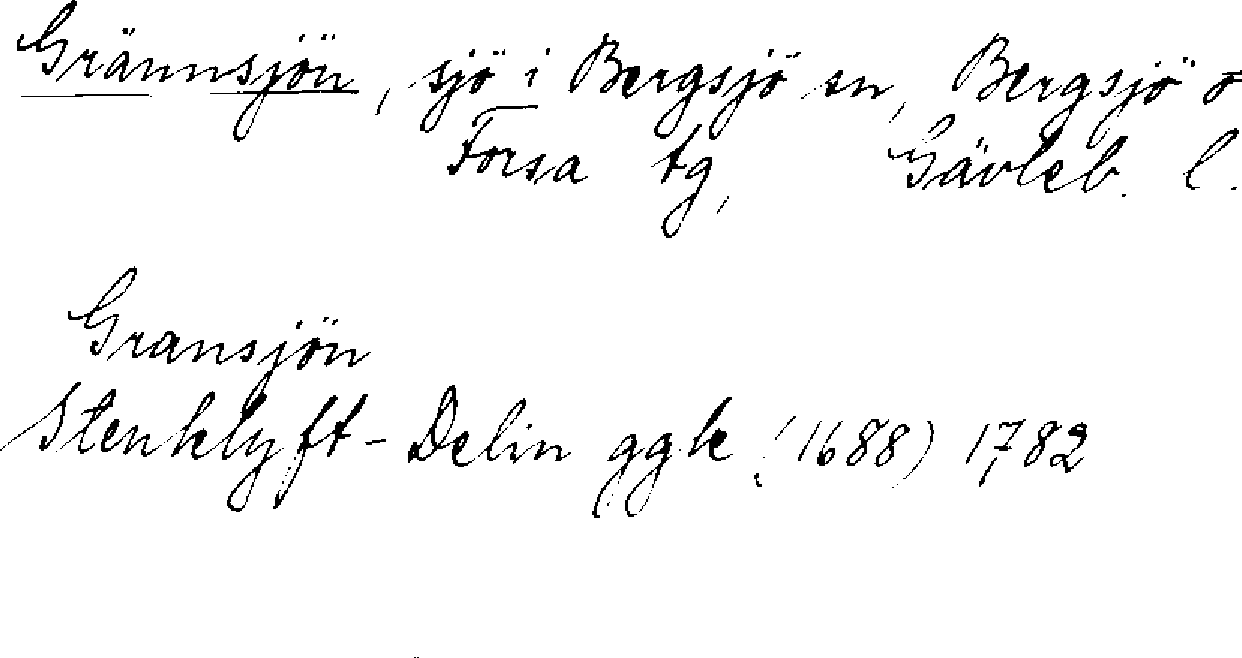 Grännsjön, sjö i Bergsjö sn, Bergsjö o
Forsa tg, Gävleb. l.
Gransjön
Stenklyft-Delin ggk (1688) 1782